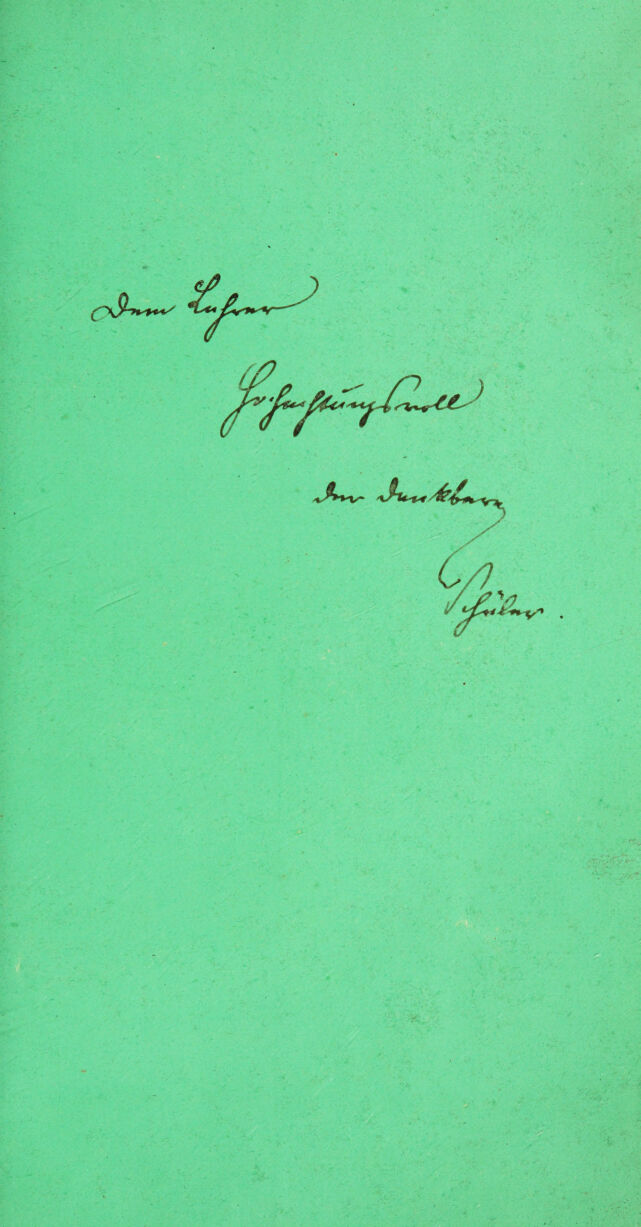 Dem Lehrer
Hochachtungsvoll
der dankbare
Schüler.